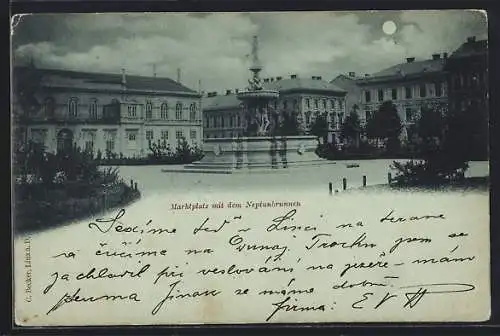 Marktplatz mit dem Neptunbrunnen
Sedíme teď v Linci na terase
a čučíme na Dunaj. Trochu jsem se
zachladil při veslování na jezeře - mám
rheuma. Jinak se máme dobře.
firma: EVH
C. Becker, Linz a. D.